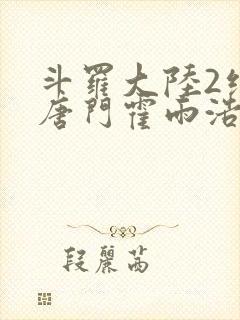 斗羅大陸2
唐門霍雨浩
段麗茜